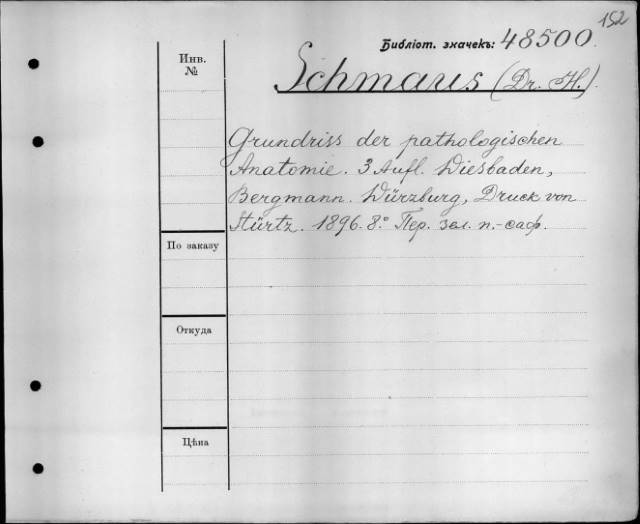 152
Библіот. значекъ: 48500.
Инв. №
Schmaus (Dr. H.).
Grundriss der pathologischen
Anatomie. 3 Aufl. Wiesbaden,
Bergmann. Würzburg, Druck von
Stürtz. 1896. 8.° Пер. зел. п.-саф.
По заказу
Откуда
Цѣна